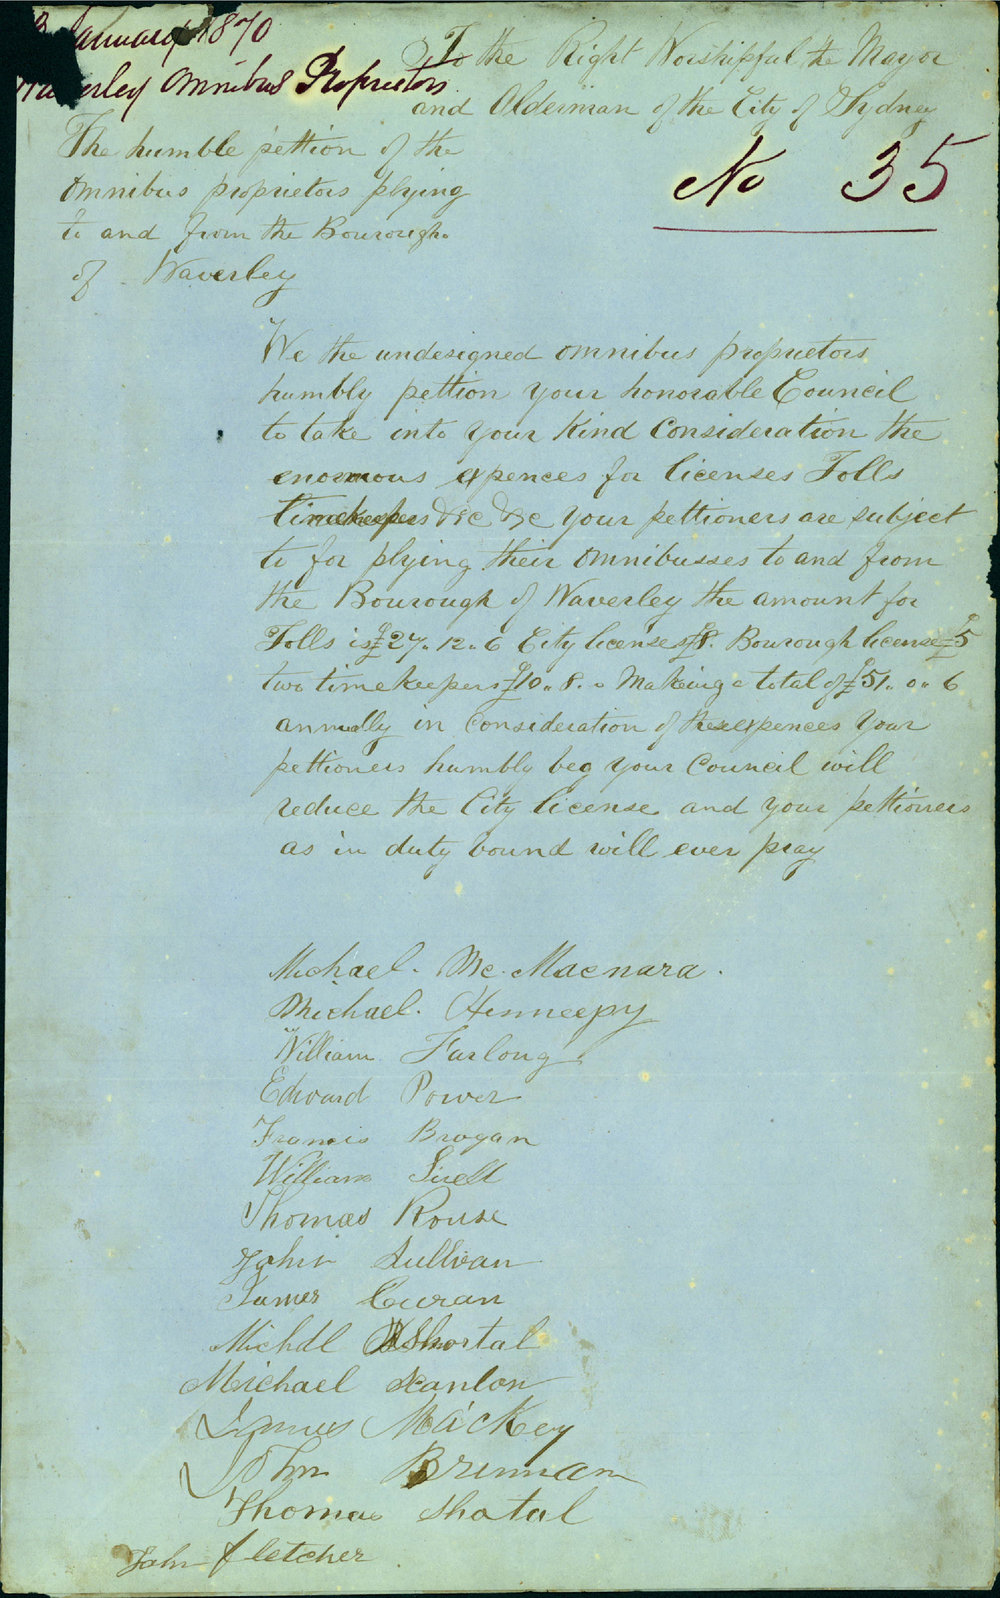 January 1870
Waverley Omnibus Proprietors
To the Right Worshipful the Mayor
and Alderman of the City of Sydney
No 35
The humble pettion of the
Omnibus proprietors plying
to and from the Bourough
of Waverley
We the undesigned omnibus proprietors
humbly pettion your honorable Council
to take into your Kind Consideration the
enormous expences for licenses Tolls
timekeepers &c &c your pettioners are subject
to for plying their Omnibusses to and from
the Bourough of Waverley the amount for
Tolls is £27.12.6 City licenses £8. Bourough license £5
two timekeepers £10.8.0 Making a total of £51.0.6
annually in Consideration of these expences Your
pettioners humbly beg your Council will
reduce the City license and your pettioners
as in duty bound will ever pray
Michael. Mc. Macnara.
Michael. Hennespy
William Furlong
Edward Power
Francis Brogan
William
Thomas Rouse
John Sullivan
James Curan
Michdl Shortal
Michael Scanlon
James Mackey
John Brennan
Thomas Shatal
John Fletcher